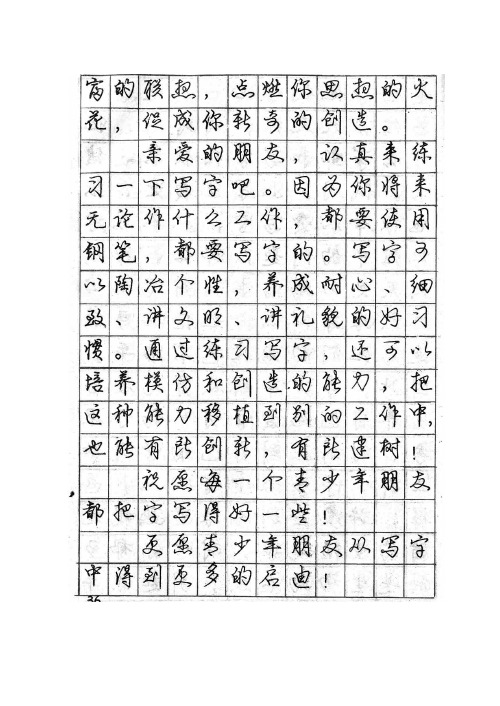 富的联想，点燃你思想的火
花，促成你新奇的创造。
亲爱的朋友，认真来练
习一下写字吧。因为你将来
无论作什么工作，都要使用
钢笔，都要写字的。写字可
以陶冶个性，养成耐心、细
致、讲文明、讲礼貌的好习
惯。通过练习写字，还可以
培养模仿和创造的能力，把
这种能力移植到别的工作中，
也能有所创新，有所建树！
祝愿每一个青少年朋友
都把字写得好一些！
更愿青少年朋友从写字
中得到更多的启迪！